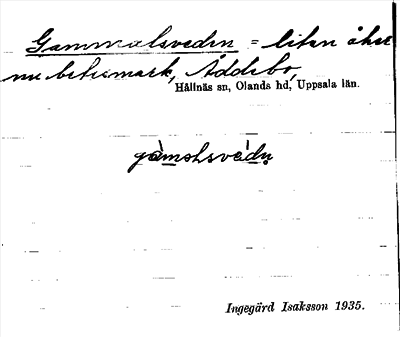 Gammalsveden = liten åker
nu betesmark, Åddebo,
Hållnäs sn, Olands hd, Uppsala län.
gàmalsvédn
Ingegärd Isaksson 1935.